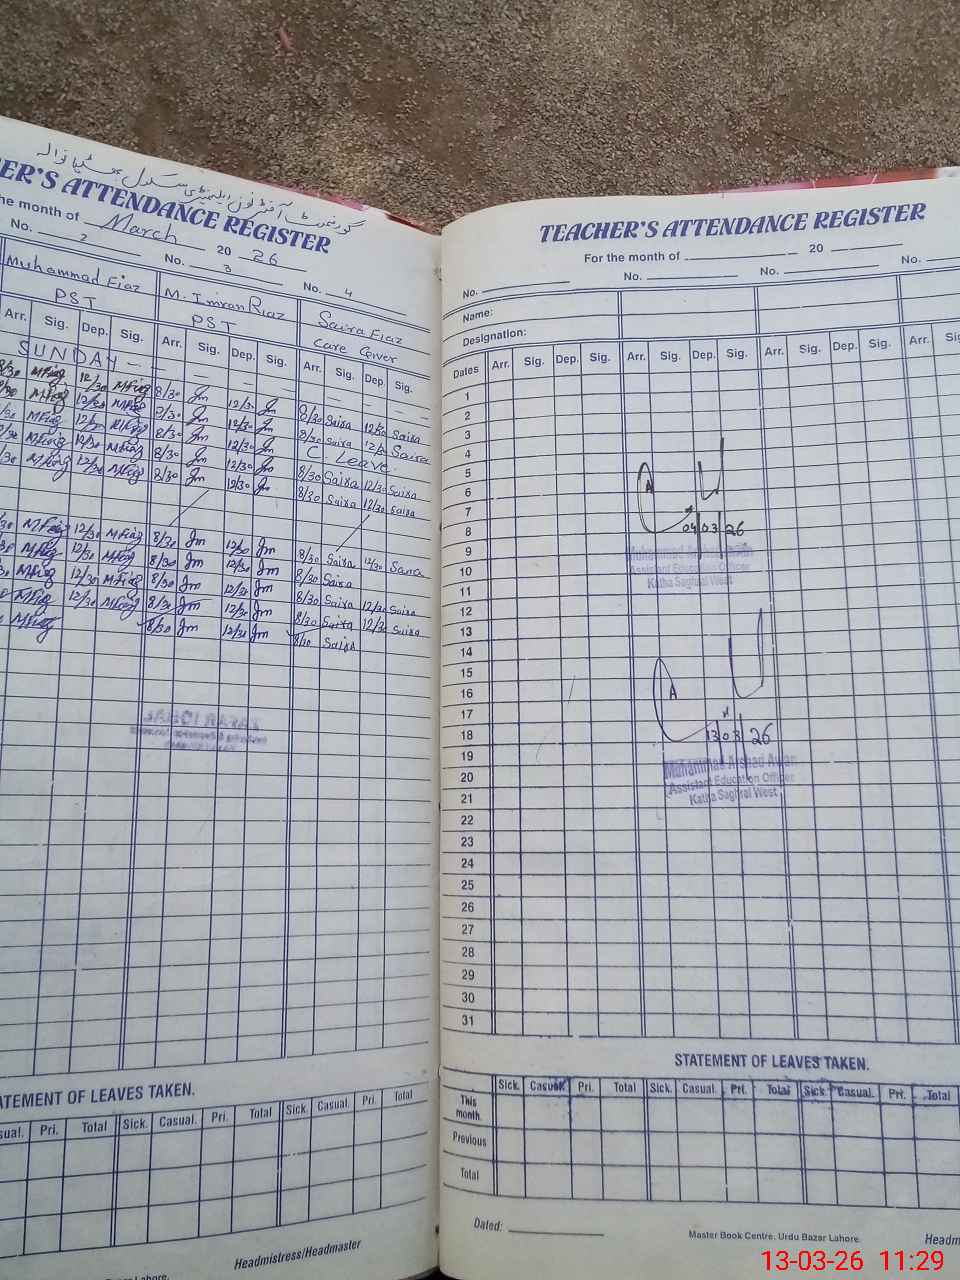 گورنمنٹ آفٹرنون ایلیمنٹری سکول
ER'S ATTENDANCE REGISTER
he month of March 20 26
No. 2 No. 3 No. 4
Muhammad Fiaz M. Imran Riaz Saira Fiaz
PST PST Care Giver
Arr. Sig. Dep. Sig. Arr. Sig. Dep. Sig. Arr. Sig. Dep. Sig.
SUNDAY
8/30 MFiaz 12/30 MFiaz 8/30 Jm 12/30 Jm 8/30 Saira 12/30 Saira
MFiaz 12/30 MFiaz 8/30 Jm 12/30 Jm 8/30 Saira 12/30 Saira
MFiaz 12/30 MFiaz 8/30 Jm 12/30 Jm C. Leave.
MFiaz 12/30 MFiaz 8/30 Jm 12/30 Jm 8/30 Saira 12/30 Saira
MFiaz 12/30 MFiaz 8/30 Jm 12/30 Jm 8/30 Saira 12/30 Saira
MFiaz 12/30 MFiaz 8/30 Jm 12/30 Jm 8/30 Saira 12/30 Saira
MFiaz 12/30 MFiaz 8/30 Jm 12/30 Jm 8/30 Saira
MFiaz 12/30 MFiaz 8/30 Jm 12/30 Jm 8/30 Saira 12/30 Saira
MFiaz 12/30 MFiaz 8/30 Jm 12/30 Jm 8/30 Saira 12/30 Saira
MFiaz 8/30 Jm 12/30 Jm 8/30 Saira
ATEMENT OF LEAVES TAKEN.
sual. Pri. Total Sick. Casual. Pri. Total Sick. Casual. Pri. Total
Headmistress/Headmaster
Lahore.
TEACHER'S ATTENDANCE REGISTER
For the month of 20
No. No. No. No.
Name:
Designation:
Dates Arr. Sig. Dep. Sig. Arr. Sig. Dep. Sig. Arr. Sig. Dep. Sig. Arr. Sig.
1
2
3
4
5
6
7
8
04/03/26
9
Muhammad Arshad Awan
10
Assistant Education Officer
11
Katha Saghral West
12
13
14
15
16
17
18
13 03 26
19
Muhammad Arshad Awan
20
Assistant Education Officer
21
Katha Saghral West
22
23
24
25
26
27
28
29
30
31
STATEMENT OF LEAVES TAKEN.
Sick. Casual. Pri. Total Sick. Casual. Pri. Total Sick. Casual. Pri. Total
This month.
Previous
Total
Dated:
Master Book Centre. Urdu Bazar Lahore.
Headm
13-03-26 11:29